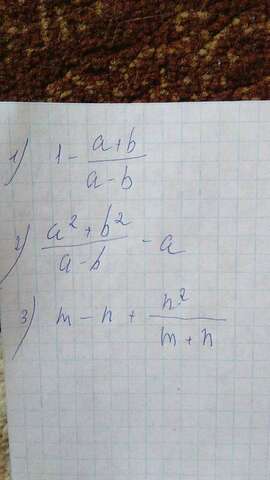 1) 1 - (a+b)/(a-b)
2) (a² + b²)/(a-b) - a
3) m - n + n²/(m+n)